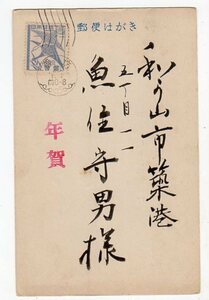 郵便はがき
和歌山市築港
五丁目一一
魚住守男様
年賀